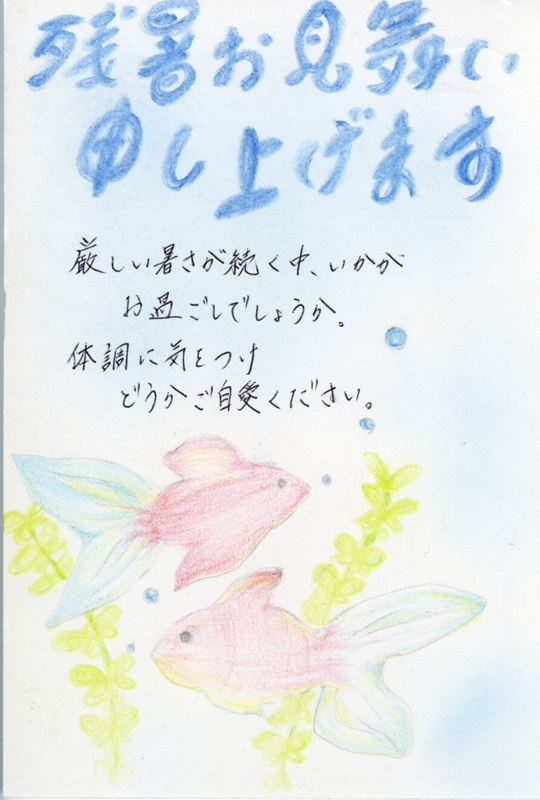 残暑お見舞い
申し上げます
厳しい暑さが続く中、いかが
お過ごしでしょうか。
体調に気をつけ
どうかご自愛ください。